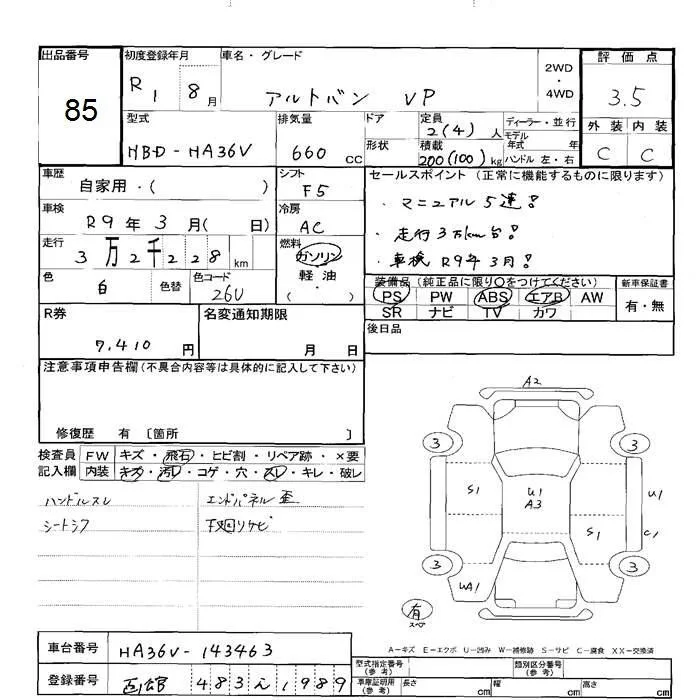 出品番号
85
初度登録年月
R1 8月
車名・グレード
アルトバン VP
2WD
・
4WD
評価点
3.5
外装 内装
C C
型式
HBD-HA36V
排気量
660 cc
ドア
形状
定員
2(4)人
積載
200(100)kg
ディーラー・並行
モデル
年式 年
ハンドル 左・右
車歴
自家用・( )
シフト
F5
車検
R9年3月( 日)
冷房
AC
走行
3万2千228km
燃料
ガソリン
軽油
( )
色
白
色替
色コード
26U
セールスポイント (正常に機能するものに限ります)
・マニュアル5速!
・走行3万km台!
・車検 R9年3月!
装備品(純正品に限り○をつけてください)
PS PW ABS エアB AW
SR ナビ TV カワ
新車保証書
有・無
後日品
R券
7,410 円
名変通知期限
月 日
注意事項申告欄(不具合内容等は具体的に記入して下さい)
修復歴 有 〔箇所 〕
検査員
記入欄
FW キズ・飛石・ヒビ割・リペア跡・×要
内装 キズ・汚レ・コゲ・穴・スレ・キレ・破レ
ハンドルスレ エンドパネル歪
シートシワ 下廻リサビ
A2
3 3
S1 U1 U1
A3
S1 C1
3 3
WA1
有
スペア
A-キズ E-エクボ U-凹み W-補修跡 S-サビ C-腐食 XX-交換済
車台番号
HA36V-143463
登録番号
函館 483 え 1989
型式指定番号
(参考)
類別区分番号
(参考)
車庫証明用
(参考)
長さ cm 幅 cm 高さ cm